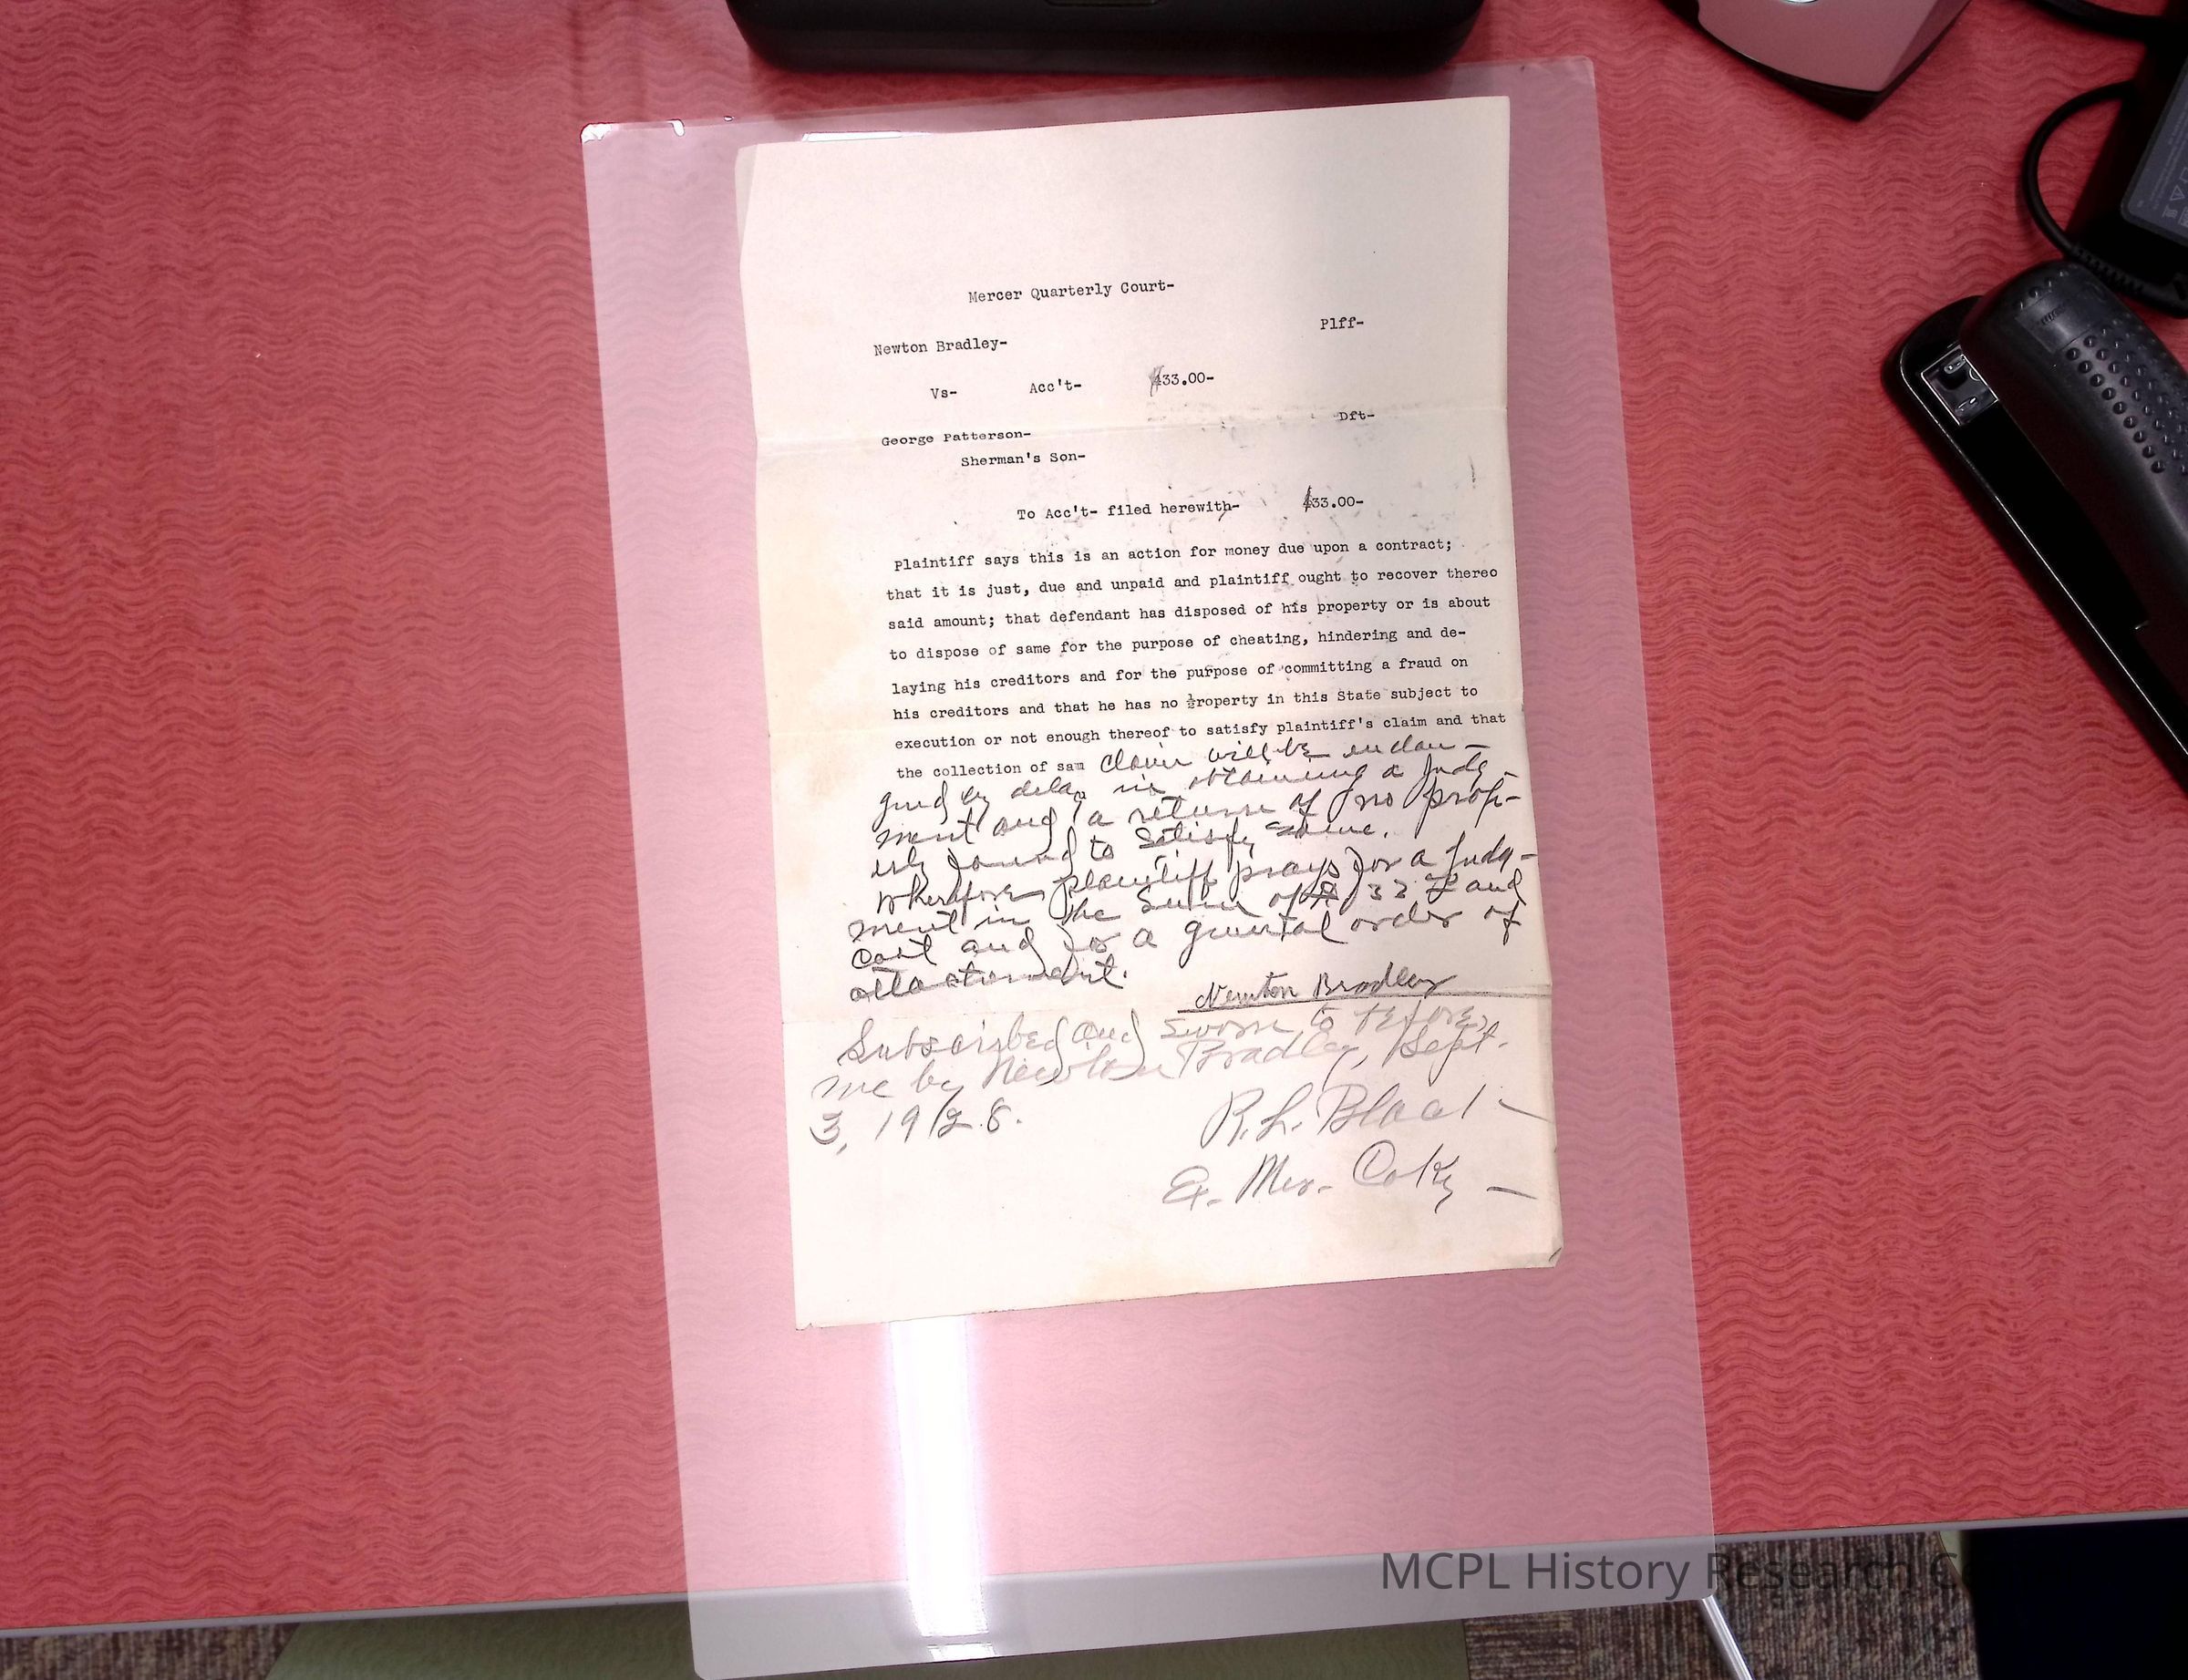 Mercer Quarterly Court-
Plff-
Newton Bradley-
Vs- Acc't- $33.00-
Dft-
George Patterson-
Sherman's Son-
To Acc't- filed herewith- $33.00-
Plaintiff says this is an action for money due upon a contract;
that it is just, due and unpaid and plaintiff ought to recover thereo
said amount; that defendant has disposed of his property or is about
to dispose of same for the purpose of cheating, hindering and de-
laying his creditors and for the purpose of committing a fraud on
his creditors and that he has no ½roperty in this State subject to
execution or not enough thereof to satisfy plaintiff's claim and that
the collection of sam claim will be endan-
gered by delay in obtaining a Judg-
ment and a return of no prop-
erty found to satisfy same.
Wherefore plaintiff prays for a Judg-
ment in the sum of $33 and
cost and for a general order of
attachment.
Newton Bradley
Subscribed and sworn to before
me by Newton Bradley, Sept.
3, 1928.
R. L. Black-
Ex. Mer. Co Ky-
MCPL History Research C